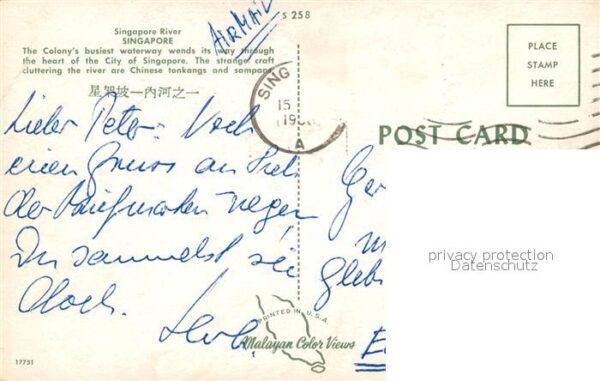 S 258
AIRMAIL
Singapore River
SINGAPORE
The Colony's busiest waterway wends its way through
the heart of the City of Singapore. The strange craft
cluttering the river are Chinese tonkangs and sampans.
星架坡一內河之一
SING
15
19
A
PLACE
STAMP
HERE
POST CARD
Lieber Peter: Noch
einen Gruss an Dich
der Briefmarken wegen,
Du sammelst sie
doch.
privacy protection
Datenschutz
PRINTED IN U.S.A.
Malayan Color Views
17751